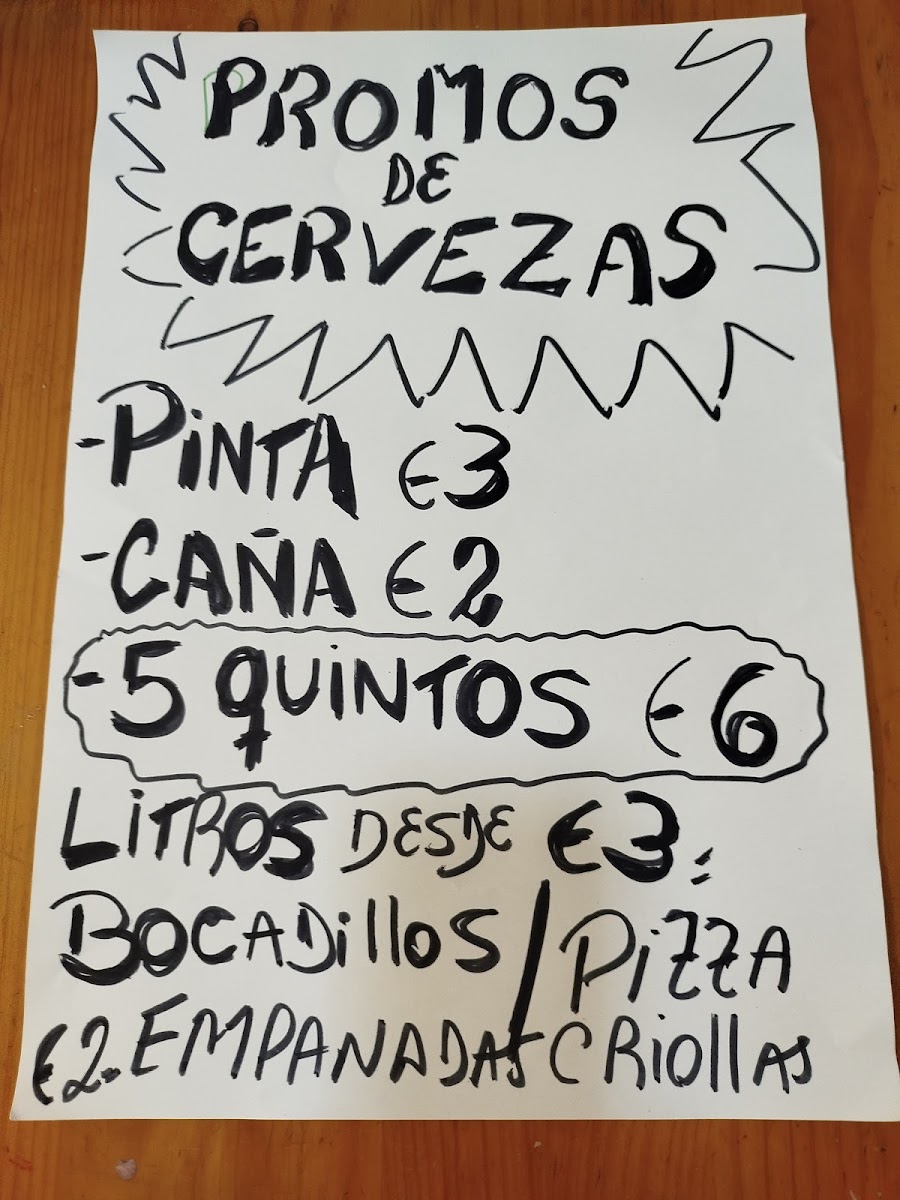 PROMOS
DE
CERVEZAS
-PiNTA €3
-CAÑA €2
-5 QUiNTOS €6
LiTROS DESDE €3.=
BOCADillOS / PiZZA
€2. EMPANADAS CRiOllAS